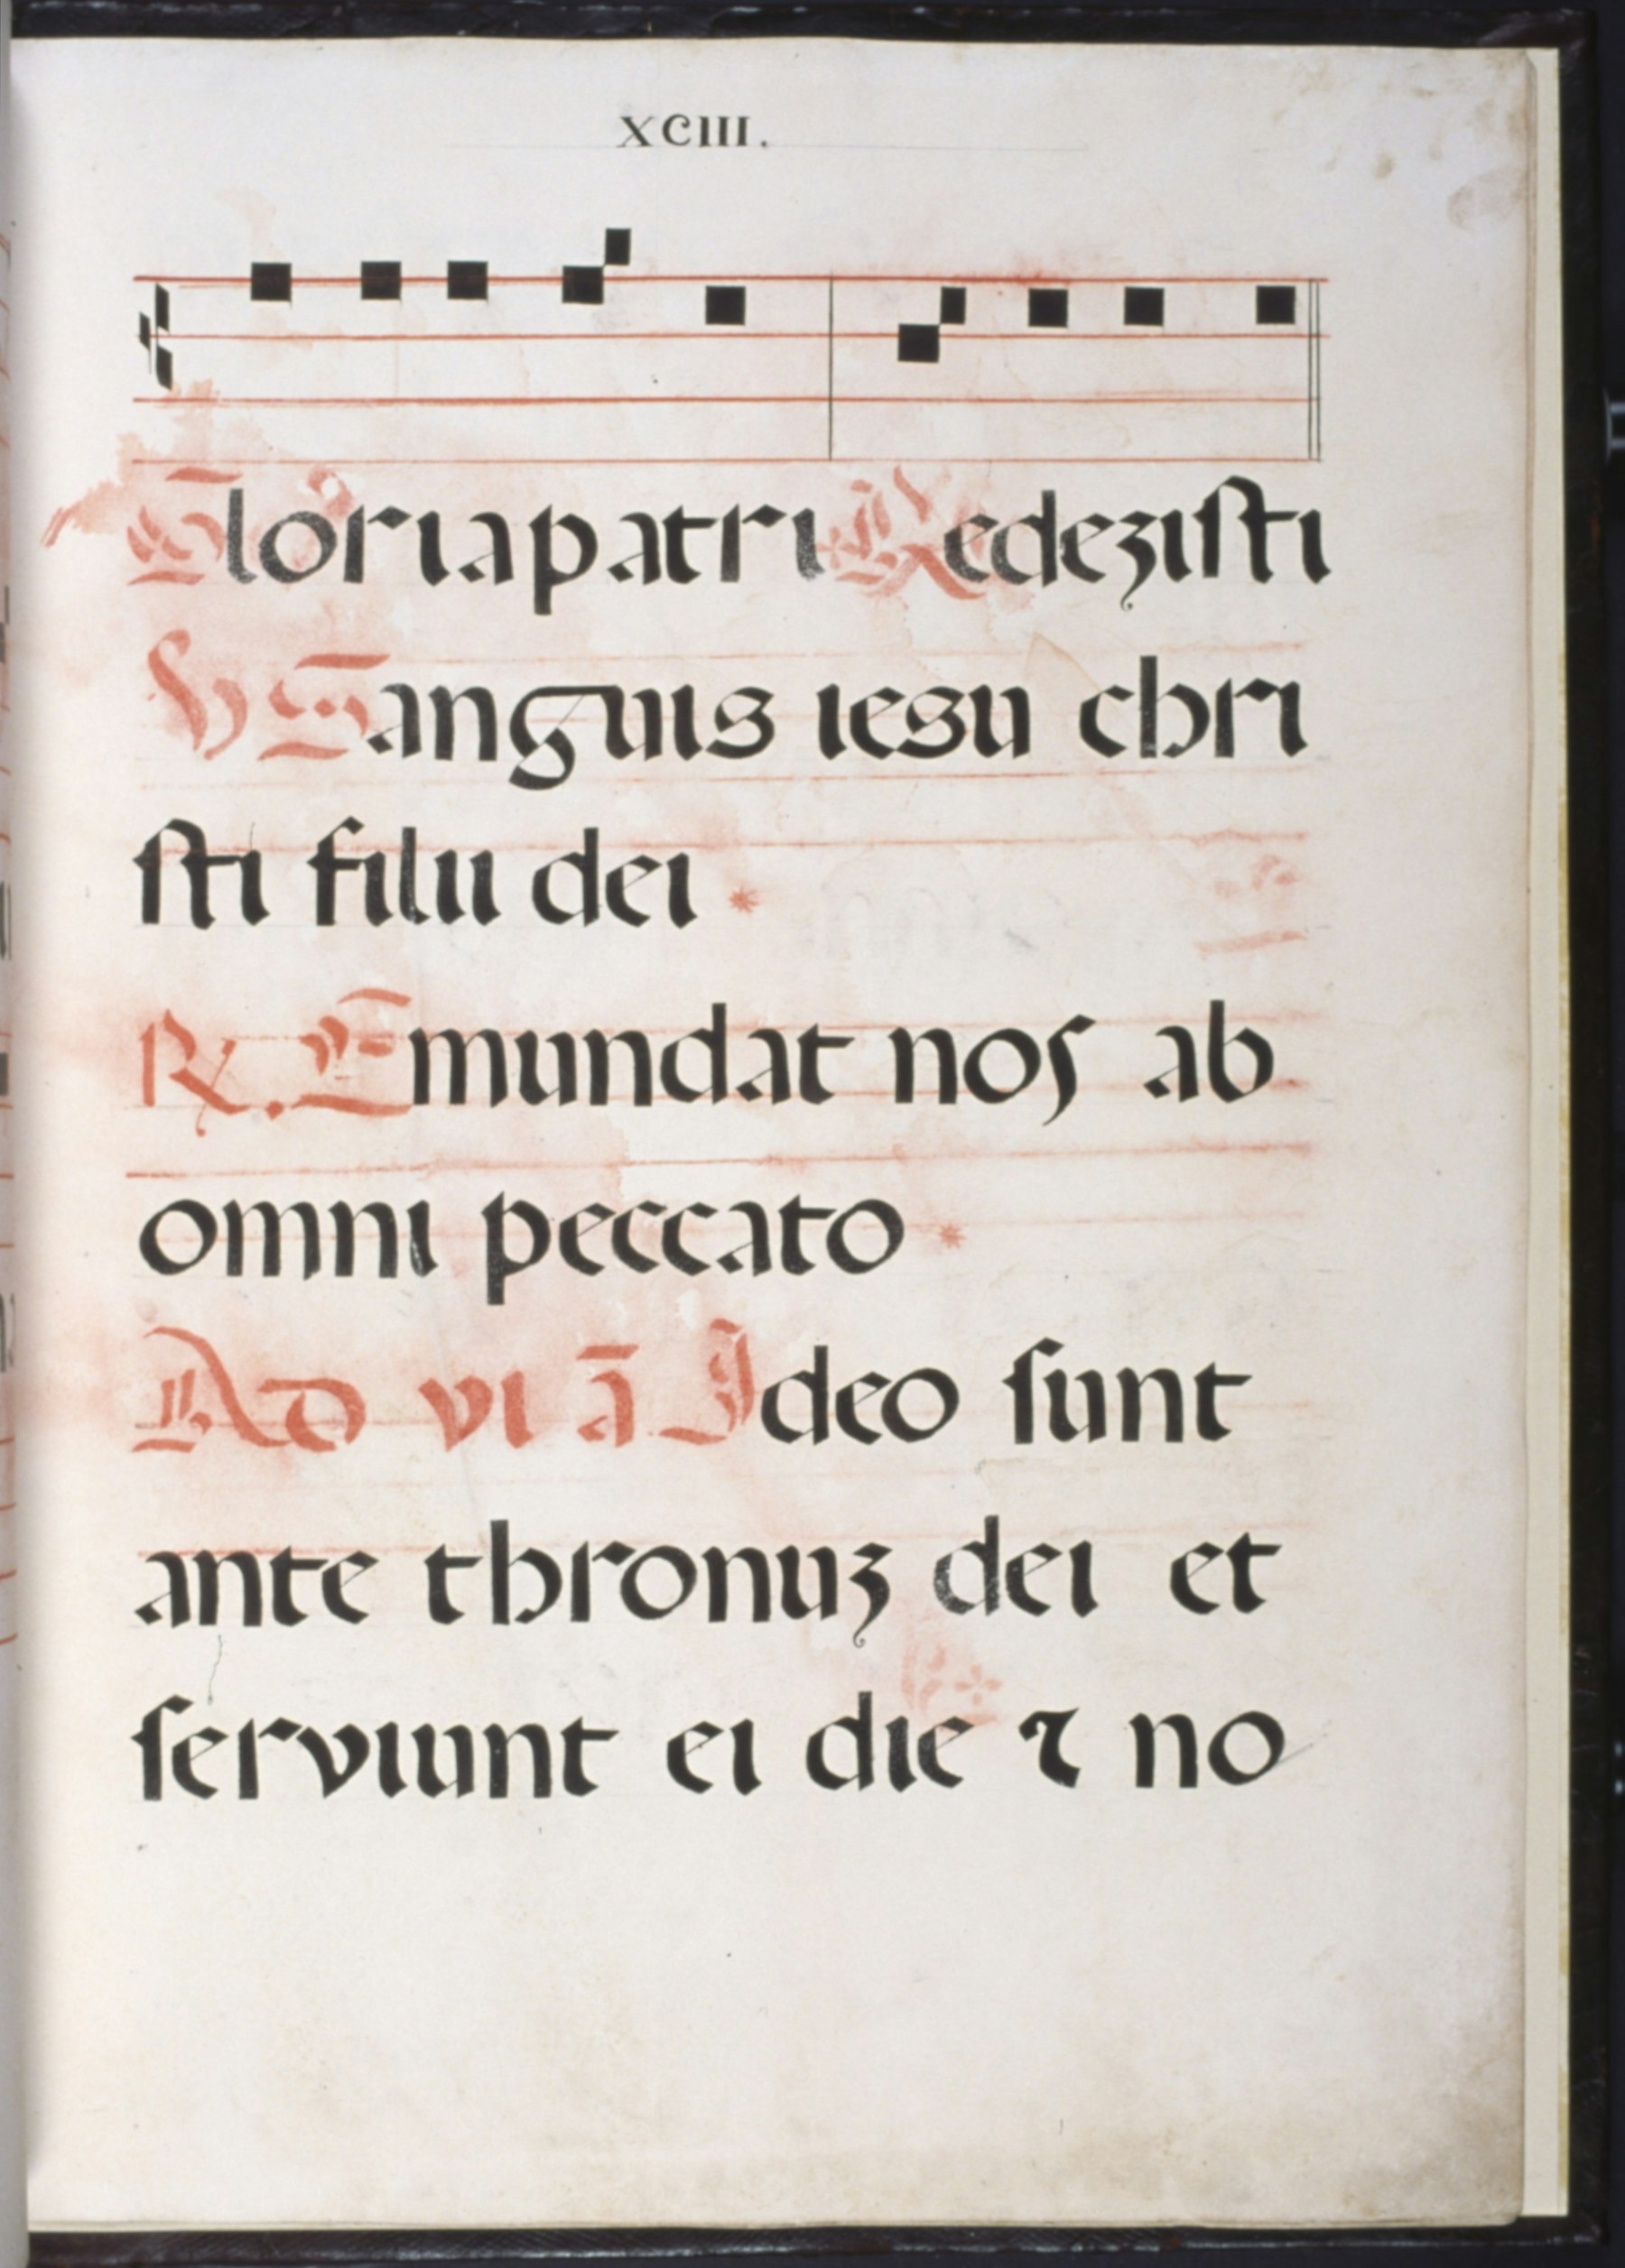 XCIII.
Gloria patri Redeziſti
V Sanguis iesu chri
ſti filii dei *
℟. Emundat nos ab
omni peccato *
AD vi ā Ideo ſunt
ante thronuꝫ dei et
ſerviunt ei die ⁊ no